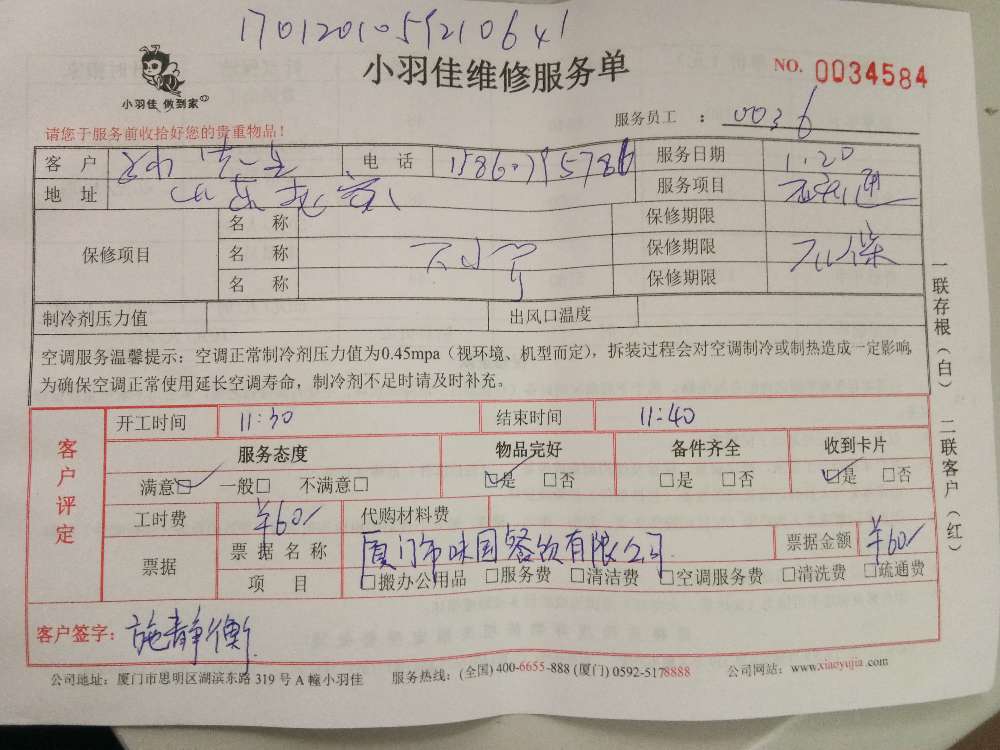 1701201059210641
小羽佳 做到家
小羽佳维修服务单
NO. 0034584
请您于服务前收拾好您的贵重物品！
服务员工 ： 0036
客 户 电 话 服务日期 1.20
地 址 服务项目
保修项目 名 称 保修期限
名 称 保修期限 不保
名 称 保修期限
制冷剂压力值 出风口温度
空调服务温馨提示：空调正常制冷剂压力值为0.45mpa（视环境、机型而定），拆装过程会对空调制冷或制热造成一定影响，
为确保空调正常使用延长空调寿命，制冷剂不足时请及时补充。
客户评定
开工时间 11:30 结束时间 11:40
服务态度 物品完好 备件齐全 收到卡片
满意☑ 一般□ 不满意□ ☑是 □否 □是 □否 ☑是 □否
工时费 ¥60/ 代购材料费
票据 票据名称 厦门市味国餐饮有限公司 票据金额 ¥60/
项 目 □搬办公用品 □服务费 □清洁费 □空调服务费 □清洗费 □疏通费
客户签字：施静衡
公司地址：厦门市思明区湖滨东路 319 号 A 幢小羽佳 服务热线：(全国) 400-6655-888 (厦门) 0592-5178888 公司网站：www.xiaoyujia.com
一联存根（白） 二联客户（红）